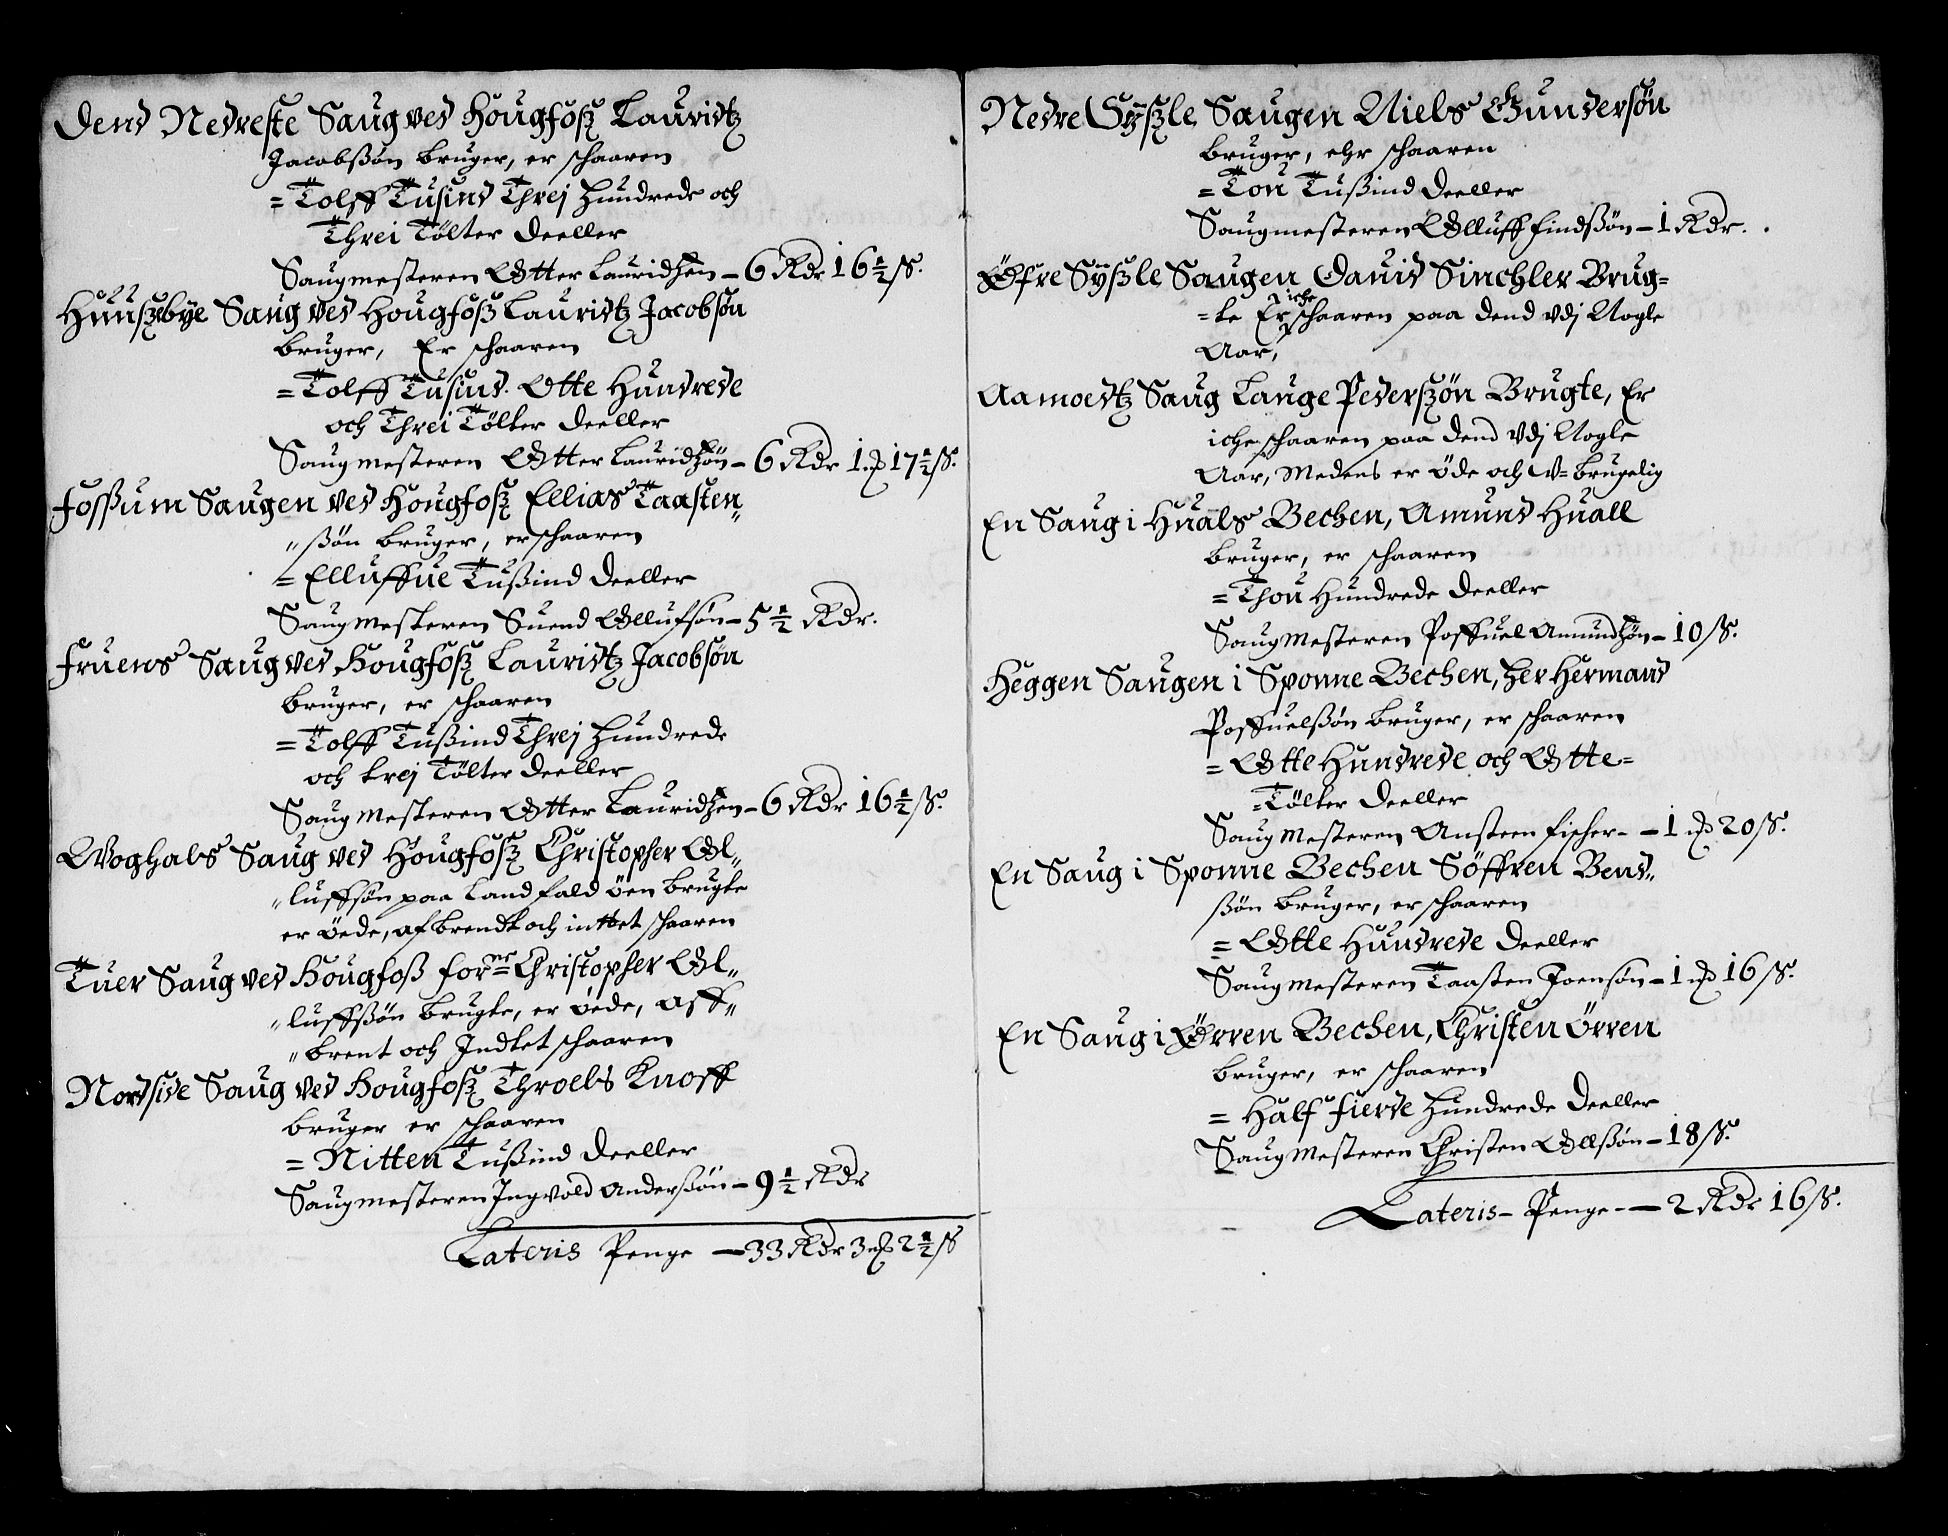 Dend Nedreste Saug ved Hougfosz Lauridtz
Jacobszøn bruger, er schaaren
= Tolff Tusind Threj Hundrede och
Threi Tølter Deeller
Saugmesteren Otter Lauridszen – 6 Rdr 16½ ß.
Huuszebye Saug ved Hougfosz Lauridtz Jacobsøn
bruger, Er schaaren
= Tolff Tusind. Otte Hundrede
och Threi Tølter Deeller
Saugmesteren Otter Lauridszøn – 6 Rdr 1 mk 17½ ß.
Fossum Saugen ved Hougfosz Ellias Taasten„
„szøn bruger, er schaaren
= Elluffue Tuszind Deeller
Saugmesteren Suend Ollufsøn – 5½ Rdr.
Fruens Saug ved Hougfosz Lauridtz Jacobsøn
bruger, er schaaren
= Tolff Tuszind Threj Hundrede
och trej Tølter Deeller
Saugmesteren Otter Lauridszen – 6 Rdr 16½ ß.
Woghals Saug ved Hougfosz Christopher Ol„
„luffsøn paa Landfald øen brugte
er øede, afbrendt och inttet schaaren
Tuer Saug ved Hougfosz forne Christopher Ol„
„luffszøn brugte, er øede, aff„
„brent och Indtet schaaren
Nordside Saug ved Hougfosz Throels Knoff
bruger er schaaren
= Nitten Tuszind Deeller
Saugmesteren Ingvold Anderszøn – 9½ Rdr
Lateris Penge – 33 Rdr 3 mk 2½ ß
Nedre Syszle Saugen Niels Gundersøn
bruger, ehr schaaren
= Tou Tuszind Deeller
Saugmesteren Olluff Findszøn – 1 Rdr.
Øfre Syszle Saugen Dauid Sinchler Brug=
=te Er iche schaaren paa dend vdj Nogle
Aar,
Aamoedtz Saug Lauge Pederszøn Brugte, Er
iche schaaren paa dend vdj Nogle
Aar, Medens er øde och V=brugelig
En Saug i Huals Bechen, Amund Huall
bruger, er schaaren
= Thou Hundrede Deeller
Saugmesteren Poffuel Amundszøn – 10 ß.
Heggen Saugen i Sponne Bechen, Her Hermand
Poffuelszøn bruger, er schaaren
= Otte Hundrede och Otte=
=Tølter Deeller
Saugmesteren Ansteen Fischer – 1 mk 20 ß.
En Saug i Sponne Bechen Søffren Bend„
szøn bruger, er schaaren
= Otte Hundrede Deeller
Saugmesteren Taasten Joensøn – 1 mk 16 ß.
En Saug i Ørren Bechen, Christen Ørren
bruger, er schaaren
= Half fierde Hundrede Deeller
Saugmesteren Christen Ollszøn – 18 ß.
Lateris – Penge – 2 Rdr 16 ß.